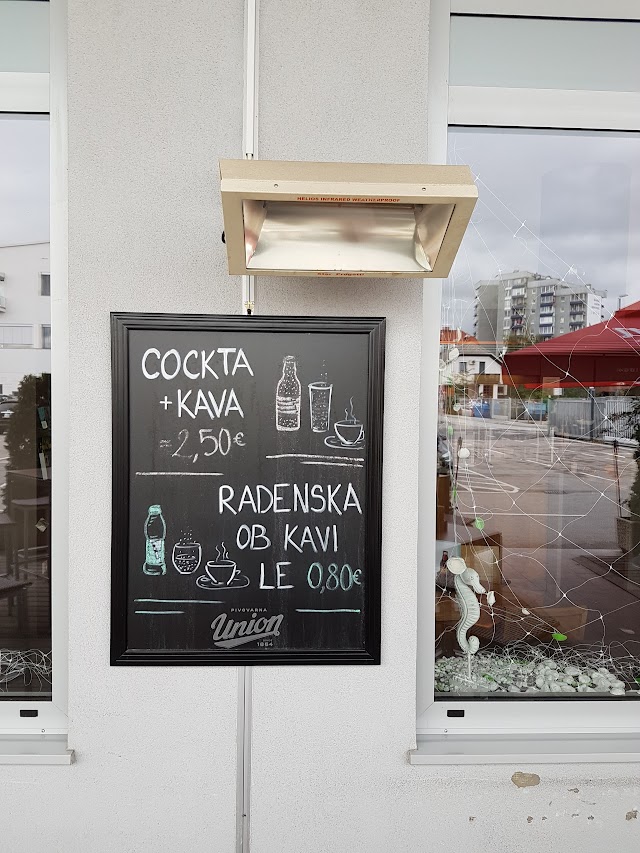 HELIOS INFRARED WEATHERPROOF
COCKTA
+ KAVA
= 2,50€
RADENSKA
OB KAVI
LE 0,80€
PIVOVARNA
Union
1864